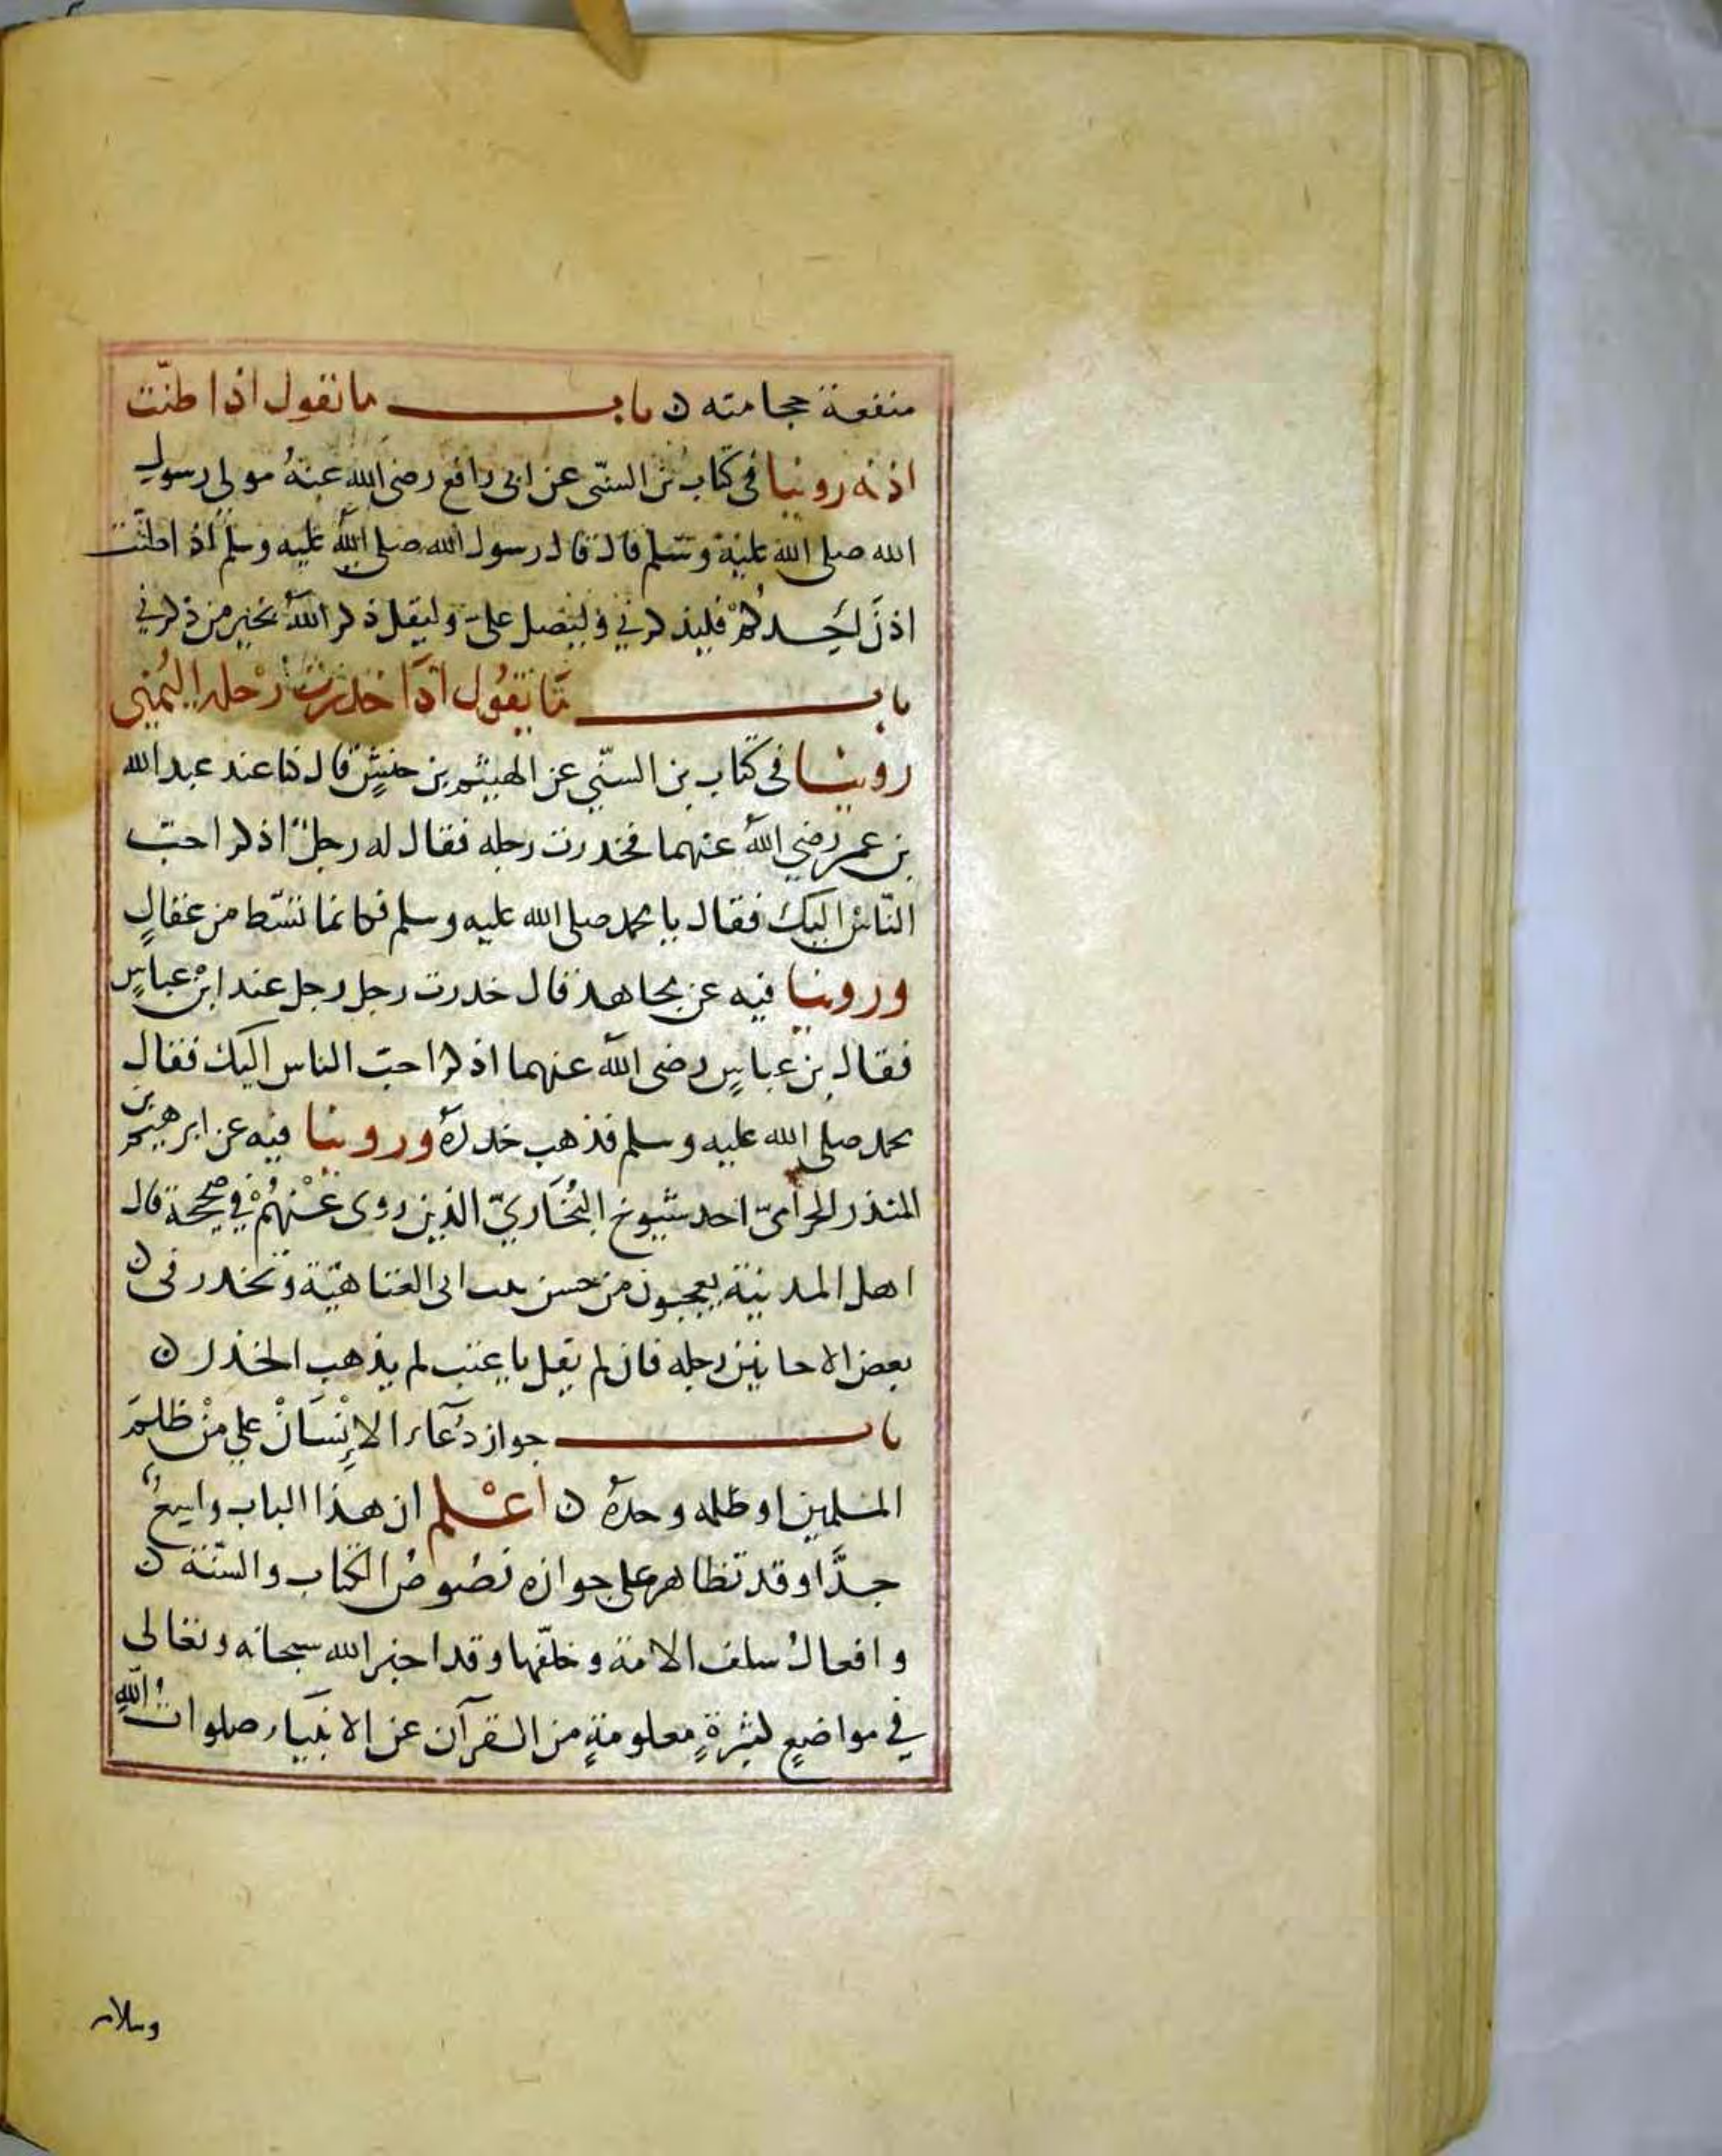 منفعة حجامته ن باب ما تقول اذا طنّت
اذنه روينا فى كتاب بن السنّى عن ابى رافع رضى الله عنهُ مولى رسول
الله صلى الله عليه وسلم قال قال رسول الله صلى الله عليه وسلم اذا طنّت
اذن احدكم فليذكرني وليصل علىّ وليقل ذكر اللهُ بخير من ذكرني
باب مَا يَقُول اذَا خدرت رجله اليُمنى
روينا فى كتاب بن السنّي عن الهيثم بن حنشٍ قال كنا عند عبد الله
بن عمر رضي اللهُ عنهما فخدرت رجله فقال له رجلٌ اذكر احبّ
النّاس اليك فقال يا محمد صلى الله عليه وسلم فكانما نشّط من عقالٍ
وروينا فيه عن مجاهد قال خدرت رجل رجل عند ابن عباسٍ
فقال بن عباسٍ رضى الله عنهما اذكر احبّ الناس اليك فقال
محمد صلى الله عليه وسلم فذهب خدرهُ وروينا فيه عن ابرهيم بن
المنذر الحزامىّ احد شيوخ البُخَاريّ الذين روى عَنْهُمْ في صحيحه قال
اهل المدينة يعجبون من حسن بيت ابى العتاهيّة وتخدر فى ن
بعض الاحايين رجله فان لم يقل يا عتب لم يذهب الخدر ن
باب جواز دُعَاء الاِنْسَانْ علي مَنْ ظلمَ
المسلمين او ظلمه وحدهُ ن اعْلم ان هذا الباب واسعٌ
جدًّا وقد تظاهر على جوازه نصُوصُ الكتاب والسّنّة ن
وافعالُ سلف الامة وخلفها وقد اخبر الله سبحانه وتعالى
في مواضيعٍ كثيرةٍ معلومةٍ من القرآن عن الانبيَاء صلوات الله
وسلامه